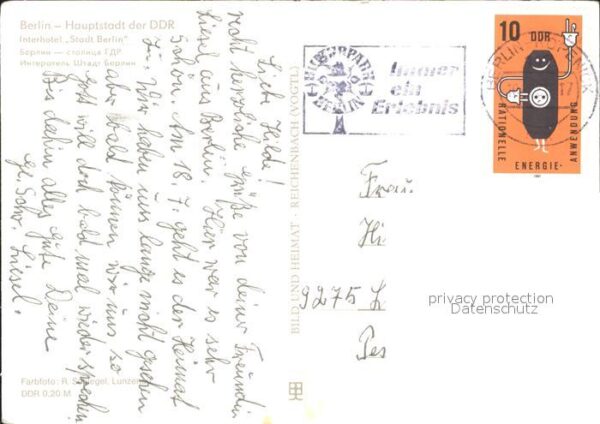 Berlin – Hauptstadt der DDR
Interhotel „Stadt Berlin"
Берлин — столица ГДР
Интеротель Штадт Берлин
Lieb. Hilde!
recht herzliche Grüße von deiner Freundin
Liesel aus Berlin. Hier war es sehr
schön. Am 18.7. geht es der Heimat
zu. Wir haben uns lange nicht gesehen
aber bald können wir uns so
Gott will doch bald mal wieder sprechen
Bis dahin alles gute Deine
Liesel.
Farbfoto: R.
DDR 0,20 M
BILD UND HEIMAT · REICHENBACH (VOGTL)
KULTURPARK
BERLIN
Immer
ein
Erlebnis
BERLIN
10 DDR
RATIONELLE
ENERGIE-
ANWENDUNG
1981
Frau
Hi
9275 L
privacy protection
Datenschutz